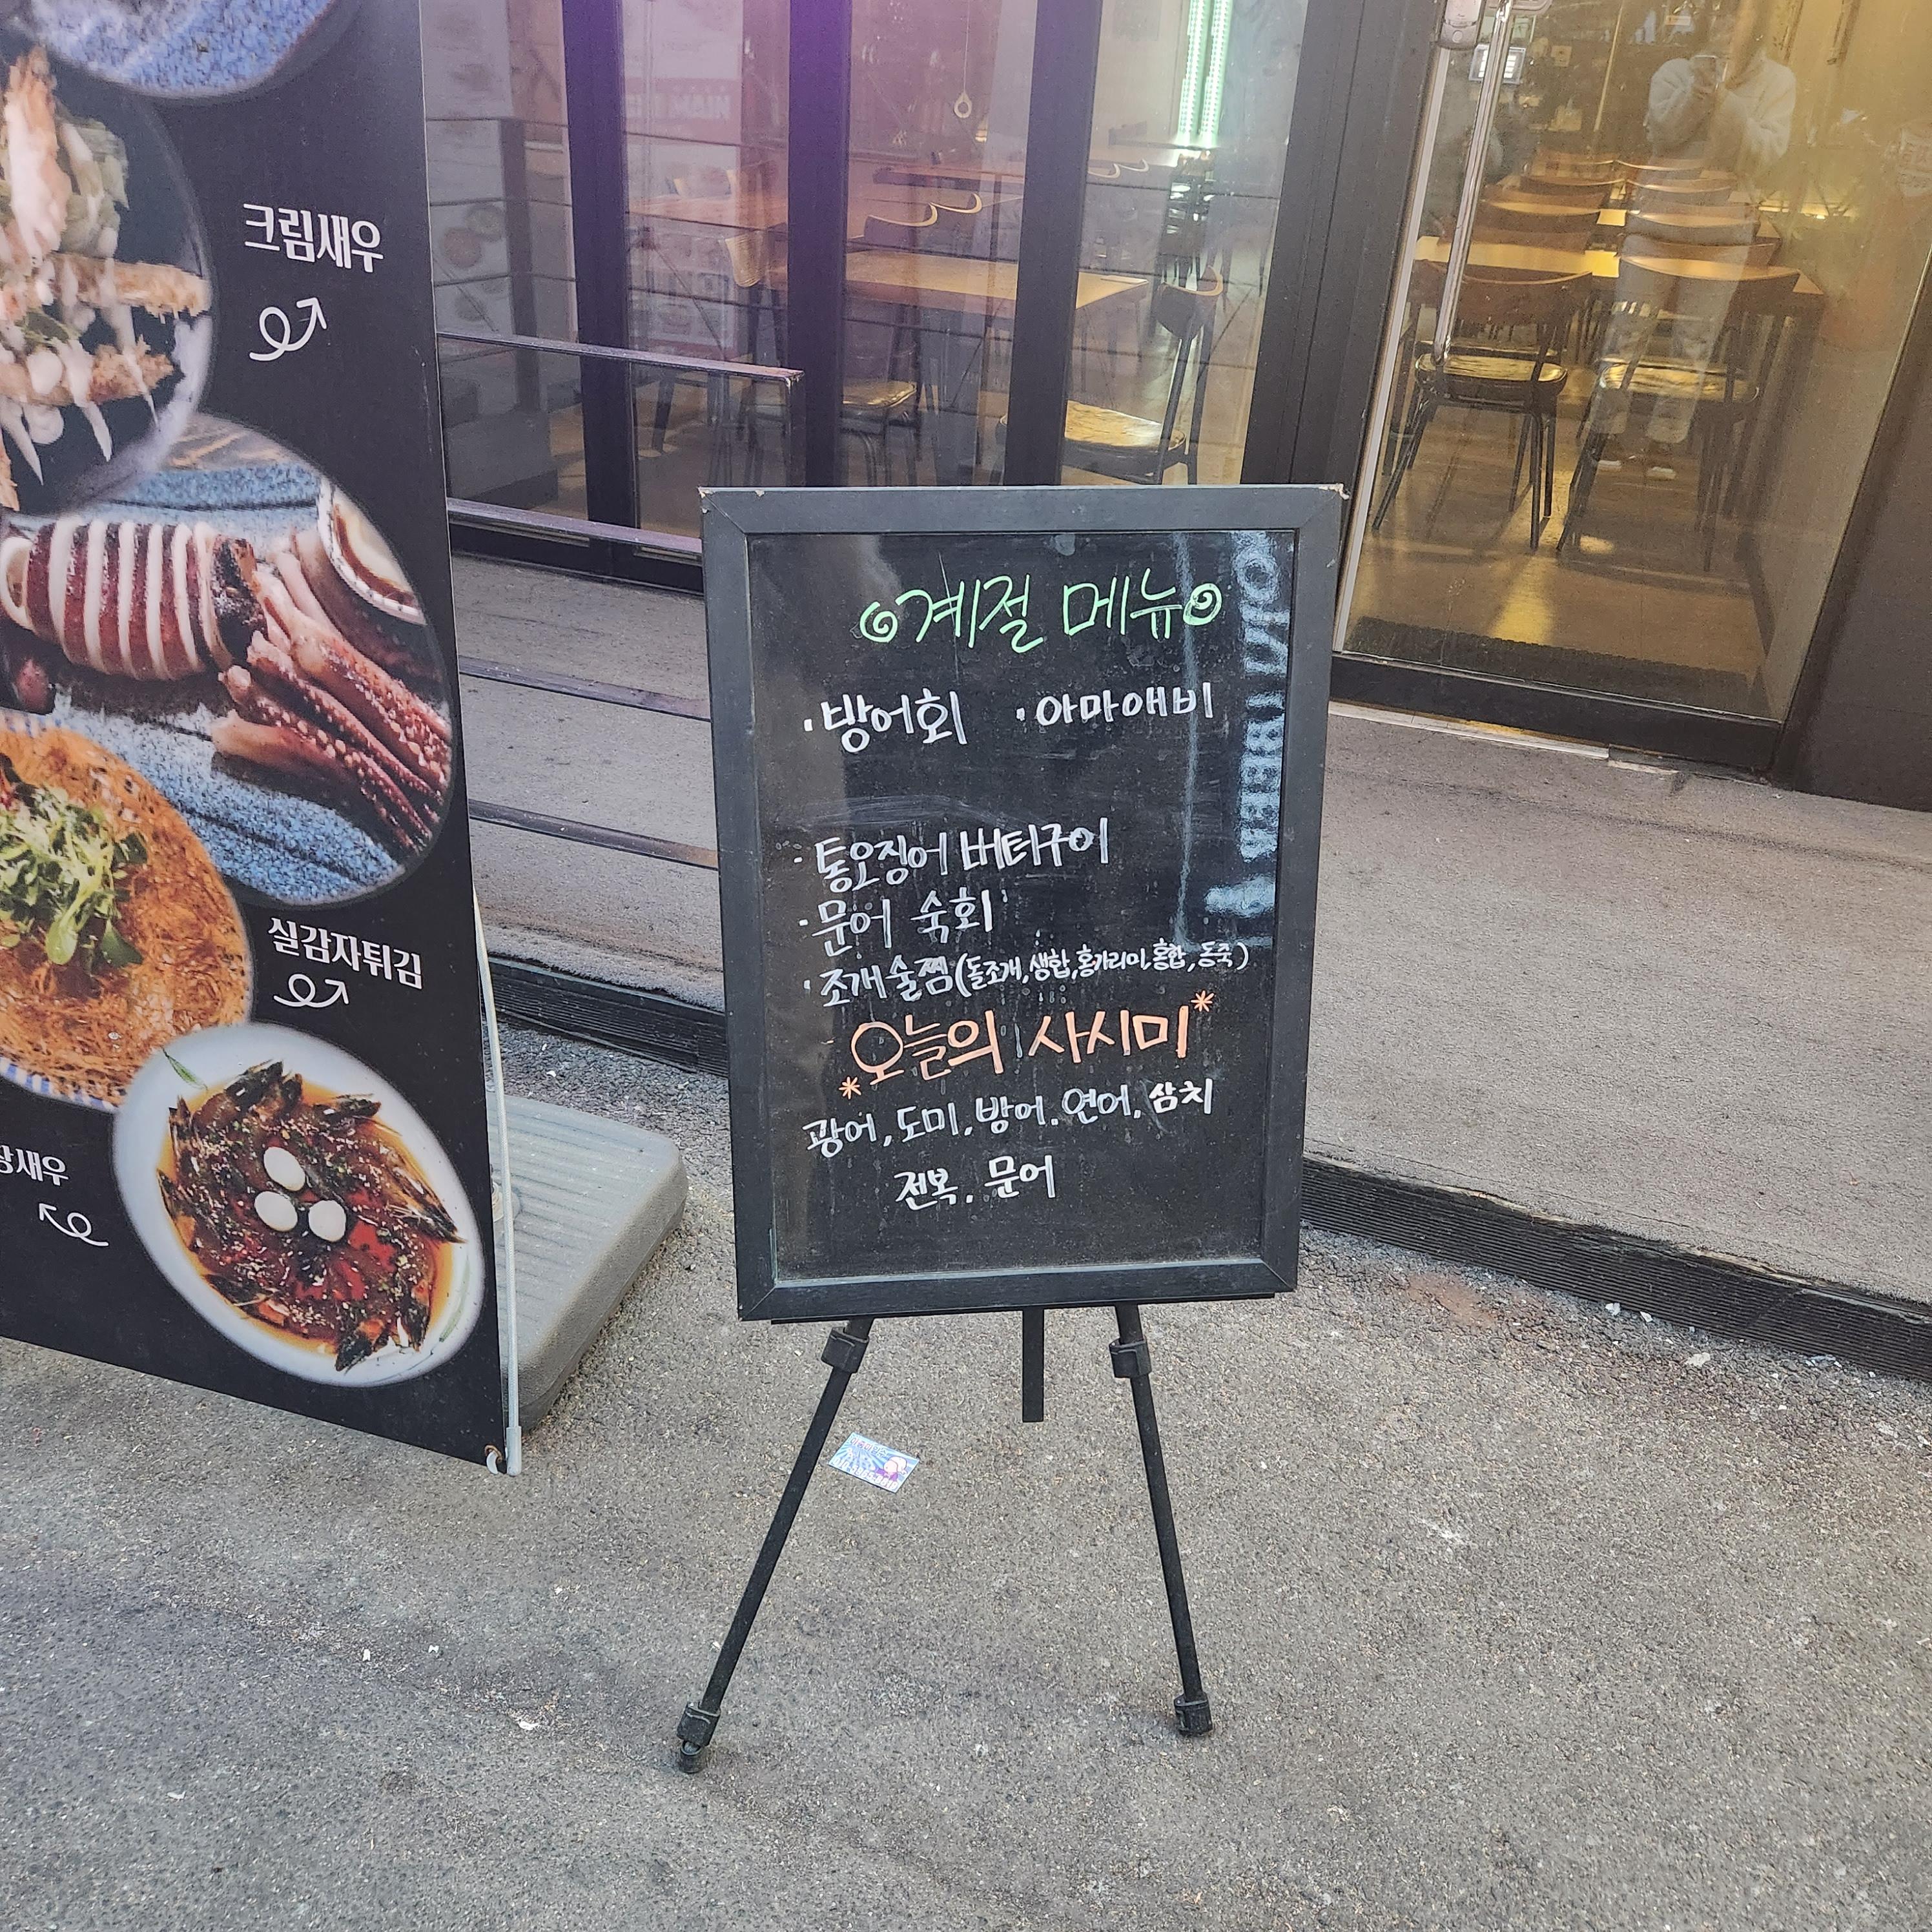 크림새우
실감자튀김
장새우
계절 메뉴
·방어회 ·아마애비
·통오징어 버터구이
·문어 숙회
·조개술찜(돌조개,생합,홍가리미,홍합,동죽)
*오늘의 사시미*
광어,도미,방어.연어,삼치
전복. 문어